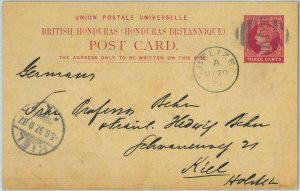 UNION POSTALE UNIVERSELLE
BRITISH HONDURAS (HONDURAS BRITANNIQUE)
POST CARD.
THE ADDRESS ONLY TO BE WRITTEN ON THIS SIDE.
THREE CENTS
BELIZE
A
MY 20
Germany
Frau Professor Behn
Fräul. Hedwig Behn
Schwanenweg 21
Kiel
Holstein
KIEL